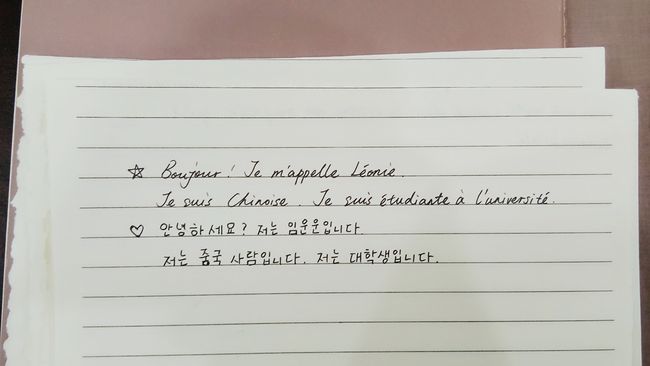 ☆ Boujour! Je m'appelle Léonie.
Je suis Chinoise. Je suis étudiante à l'université.
♡ 안녕하세요? 저는 임운운입니다.
저는 중국 사람입니다. 저는 대학생입니다.